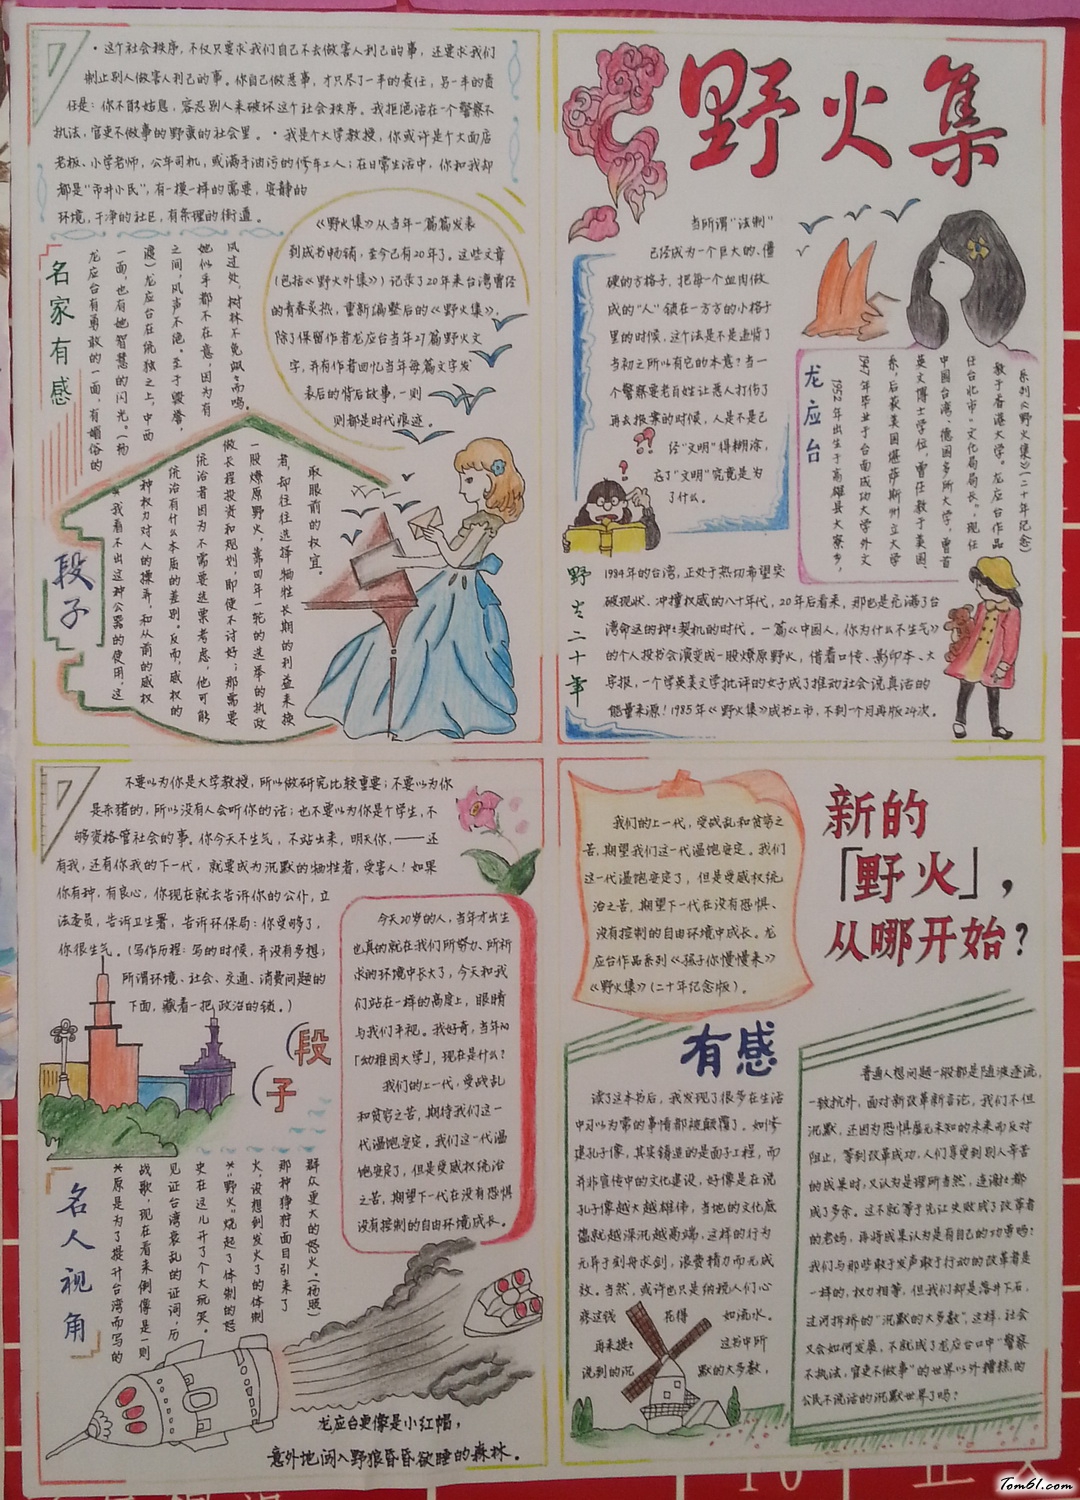 ·这个社会秩序,不仅只要求我们自己不去做害人利己的事,还要求我们
制止别人做害人利己的事。你自己做恶事,才只尽了一半的责任,另一半的责
任是:你不能姑息,容忍别人来破坏这个社会秩序。我拒绝活在一个警察不
执法,官吏不做事的野蛮的社会里。·我是个大学教授,你或许是个大面店
老板、小学老师,公车司机,或满手油污的修车工人;在日常生活中,你和我却
都是“市井小民”,有一模一样的需要,安静的
环境,干净的社区,有条理的街道。
《野火集》从当年一篇篇发表
到成书畅销,至今已有20年了。这些文章
(包括《野火外集》)记录了20年来台湾曾经
的青春炙热,重新编整后的《野火集》,
除了保留作者龙应台当年27篇野火文
字,并有作者回忆当年每篇文字发
表后的背后故事,一则
则都是时代痕迹。
名家有感
风过处,树林不免飒飒而鸣。
她似乎都不在意,因为有
之间,风声不绝。至于毁誉,
渡)龙应台在统独之上,中西
一面,也有她智慧的闪光。(杨
龙应台有勇敢的一面,有媚俗的
段子
取眼前的权宜。
者,却往往选择牺牲长期的利益来换
一股燎原野火,靠四年一轮的选举的执政
做长程投资和规划,即使不讨好;那需要
统治者因为不需要选票考虑,他可能
统治有什么本质的差别。反而,威权的
神权力对人的操弄,和从前的威权
*我看不出这种公器的使用,这
野火集
当所谓“法制”
已经成为一个巨大的、僵
硬的方格子,把每一个血肉做
成的“人”镇在一方方的小格子
里的时候,这个法是不是违背了
当初之所以有它的本意?当一
个警察要老百姓让恶人打伤了
再去报案的时候,人是不是已
经“文明”得糊涂,
忘了“文明”究竟是为
了什么。
龙应台
系列《野火集》(二十年纪念)
教于香港大学。龙应台作品
任台北市“文化局局长。”现任
中国台湾、德国多所大学,曾首
英文博士学位,曾任教于美国、
系,后获美国堪萨斯州立大学
1974年毕业于台南成功大学外文
1952年出生于高雄县大寮乡,
野火二十年
1984年的台湾,正处于热切希望突
破现状、冲撞权威的八十年代,20年后看来,那也是充满了台
湾命运的种种契机的时代。一篇《中国人,你为什么不生气》
的个人投书会演变成一股燎原野火,借着口传、影印本、大
字报,一个学英美文学批评的女子成了推动社会说真话的
能量来源!1985年《野火集》成书上市,不到一个月再版24次。
不要以为你是大学教授,所以做研究比较重要;不要以为你
是杀猪的,所以没有人会听你的话;也不要以为你是个学生,不
够资格管社会的事。你今天不生气,不站出来,明天你,——还
有我,还有你我的下一代,就要成为沉默的牺牲者,受害人!如果
你有种,有良心,你现在就去告诉你的公仆,立
法委员,告诉卫生署,告诉环保局:你受够了,
你很生气。(写作历程:写的时候,并没有多想;
所谓环境、社会、交通、消费问题的
下面,藏着一把政治的锁。)
段子
今天20岁的人,当年才出生
也真的就在我们所努力、所祈
求的环境中长大了,今天和我
们站在一样的高度上,眼睛
与我们平视。我好奇,当年的
「幼稚园大学」,现在是什么?
我们的上一代,受战乱
和贫穷之苦,期待我们这一
代温饱安定。我们这一代温
饱安定了,但是受威权统治
之苦,期望下一代在没有恐惧
没有控制的自由环境成长。
名人视角
群众更大的怒火。(杨照)
那种狰狞面目引来了
火,没想到发火了的体制
*“野火”烧起了体制的怒
史在这儿开了个大玩笑。
见证台湾衰乱的证词,历
战歌,现在看来倒像是一则
*原是为了提升台湾而写的
龙应台更像是小红帽,
意外地闯入野狼昏昏欲睡的森林。
我们的上一代,受战乱和贫穷之
苦,期望我们这一代温饱安定。我们
这一代温饱安定了,但是受威权统
治之苦,期望下一代在没有恐惧、
没有控制的自由环境中成长。龙
应台作品系列《孩子你慢慢来》
《野火集》(二十年纪念版)。
新的
「野火」,
从哪开始?
有感
读了这本书后,我发现了很多在生活
中习以为常的事情都被颠覆了。如修
建孔子像,其实铸造的是面子工程,而
并非宣传中的文化建设,好像是在说
孔子像越大越雄伟,当地的文化底
蕴就越深沉越高端,这样的行为
无异于刻舟求剑,浪费精力而无成
效。当然,或许也只是纳税人们心
疼这钱 花得 如流水。
再来提: 这书中所
说到的沉 默的大多数,
普通人想问题一般都是随波逐流,
一致抗外,面对新改革新言论,我们不但
沉默,还因为恐惧虚无未知的未来而反对
阻止,等到改革成功,人们享受到别人辛苦
的成果时,又认为是理所当然,连谢谢都
成了多余。这不就等于先让失败成了改革者
的老妈,再将成果认为是有自己的功勇吗?
我们与那些敢于发声敢于行动的改革者是
一样的,权力相等,但我们却是落井下石,
过河拆桥的“沉默的大多数”。这样,社会
又会如何发展,不就成了龙应台口中“警察
不执法,官吏不做事”的世界以外糟糕的
公民不说话的沉默世界了吗?
Tom61.com